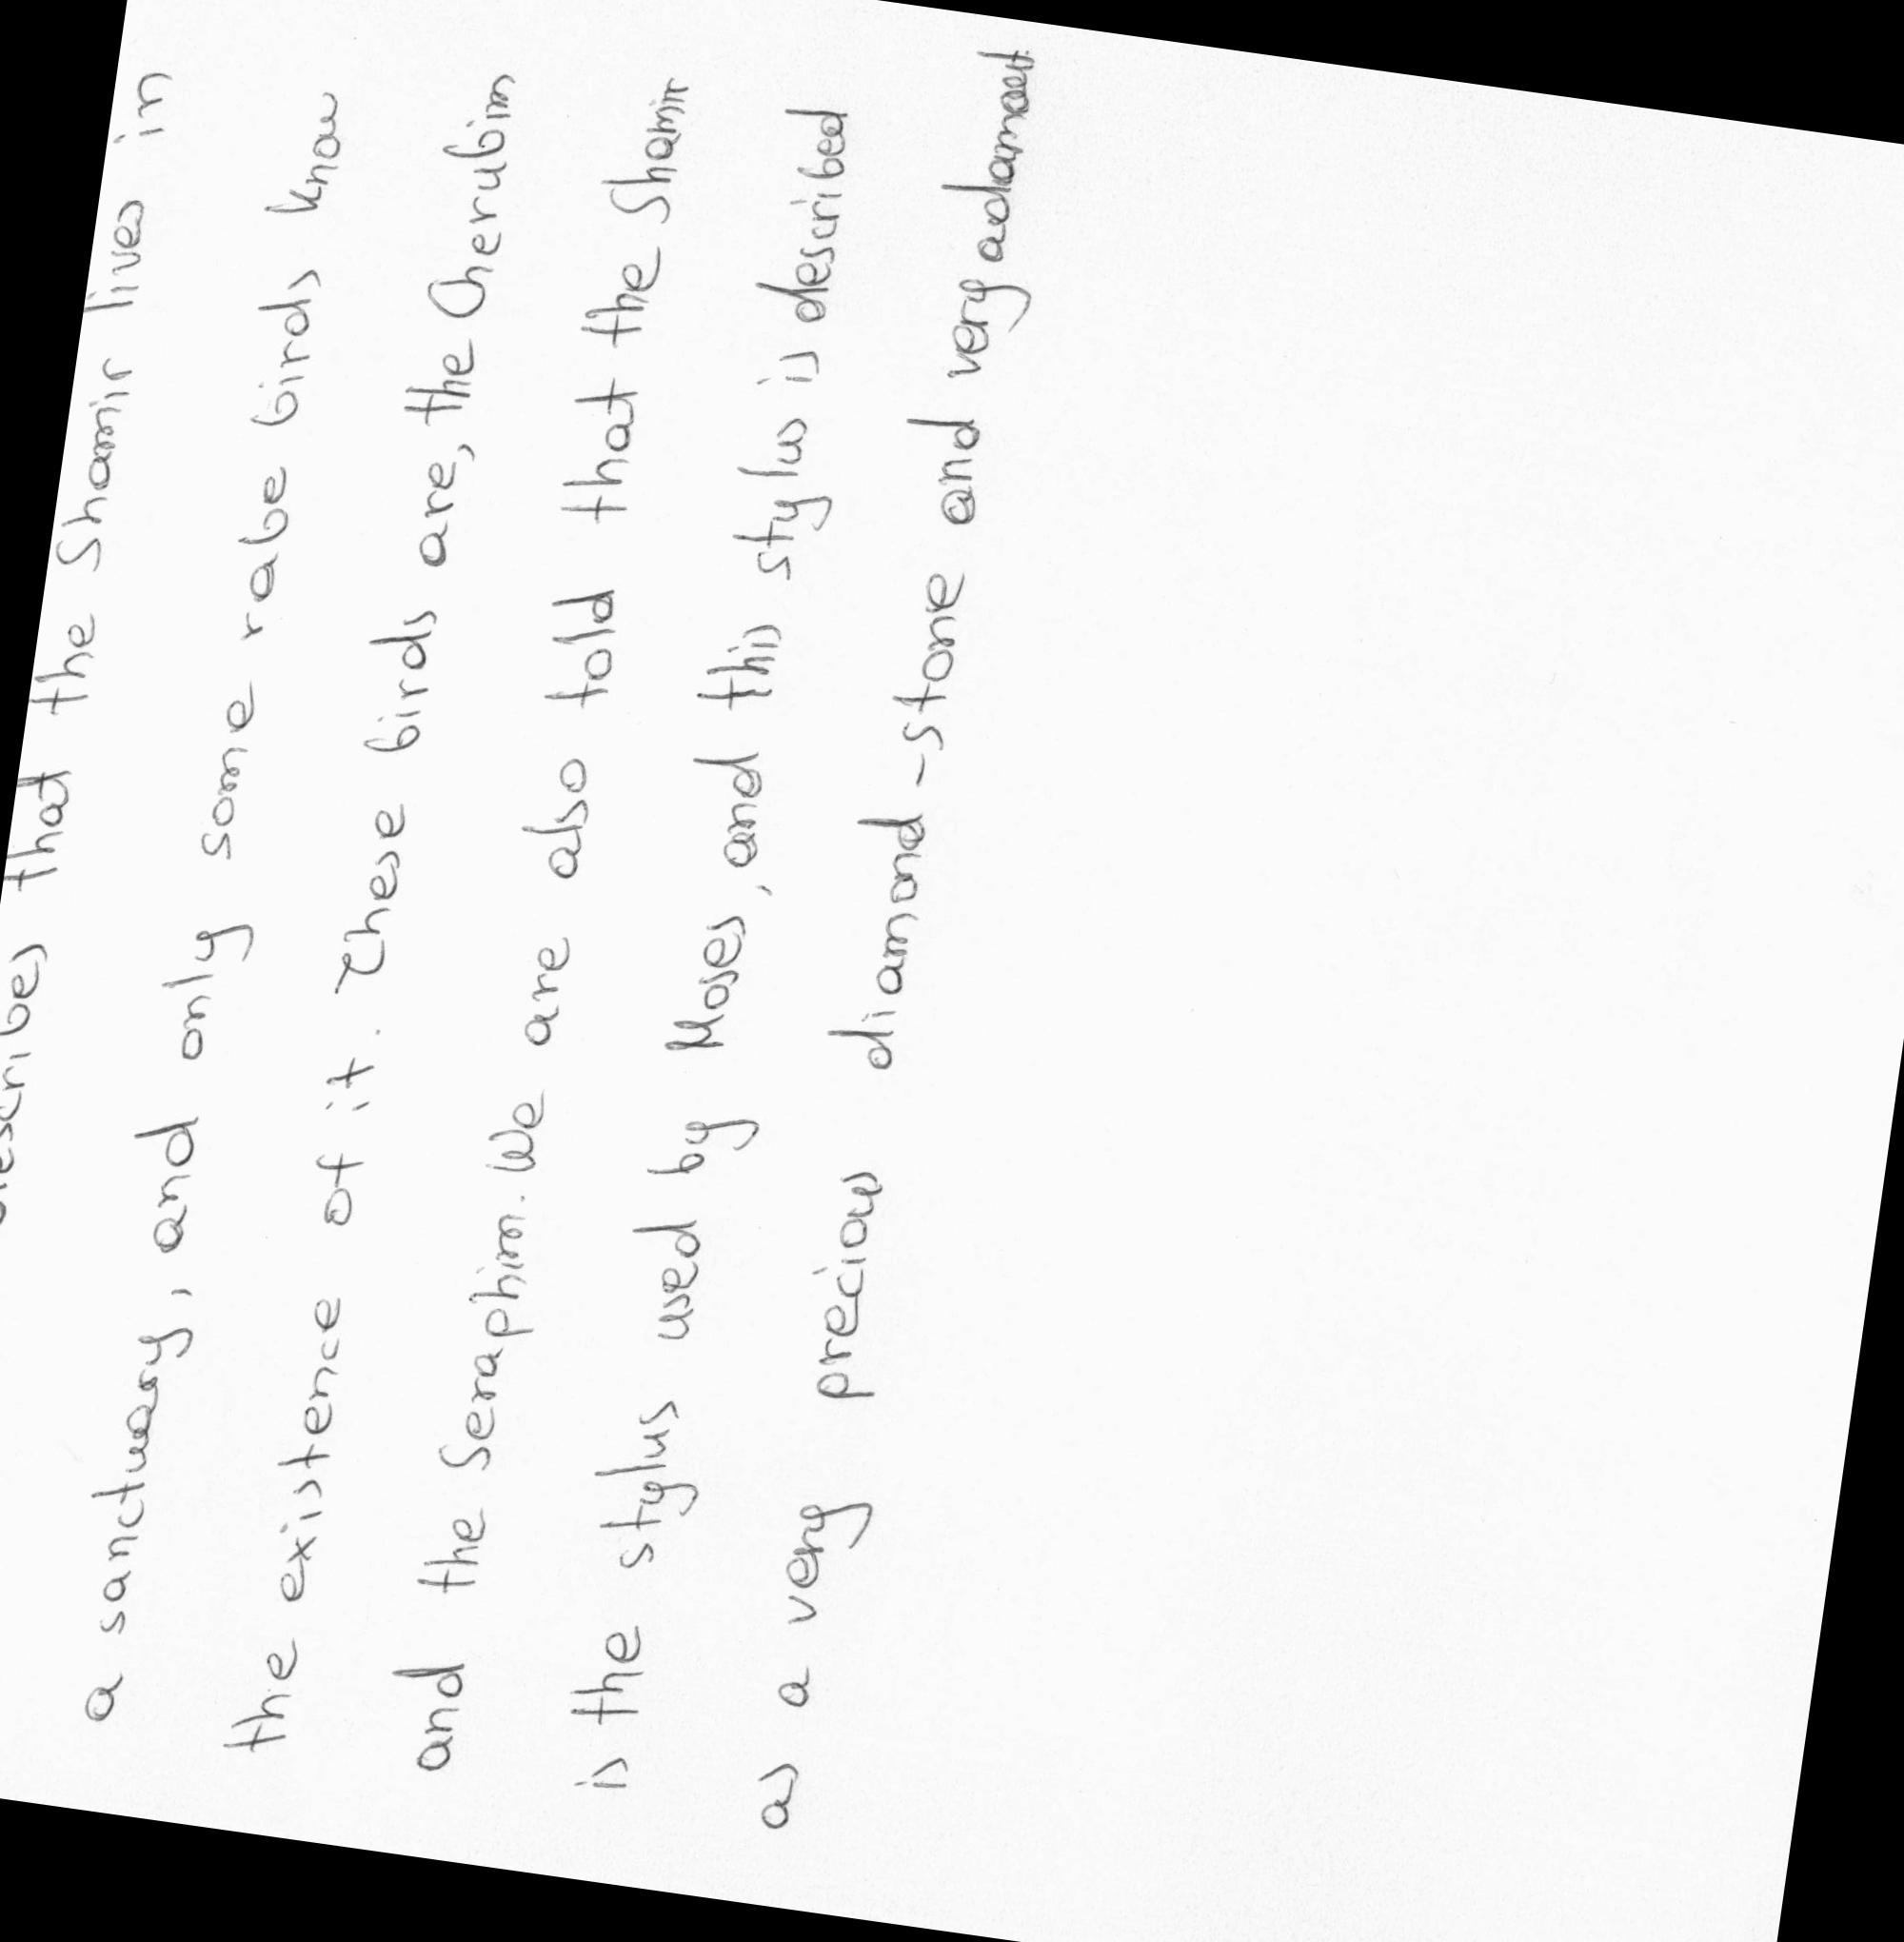 describes that the Shamir lives in
a sanctuary, and only some rabe birds know
the existence of it. These birds are, the Cherubim
and the Seraphim. We are also told that the Shamir
is the stylus used by Moses, and this stylus is described
as a very precious diamond-stone and very adamant.